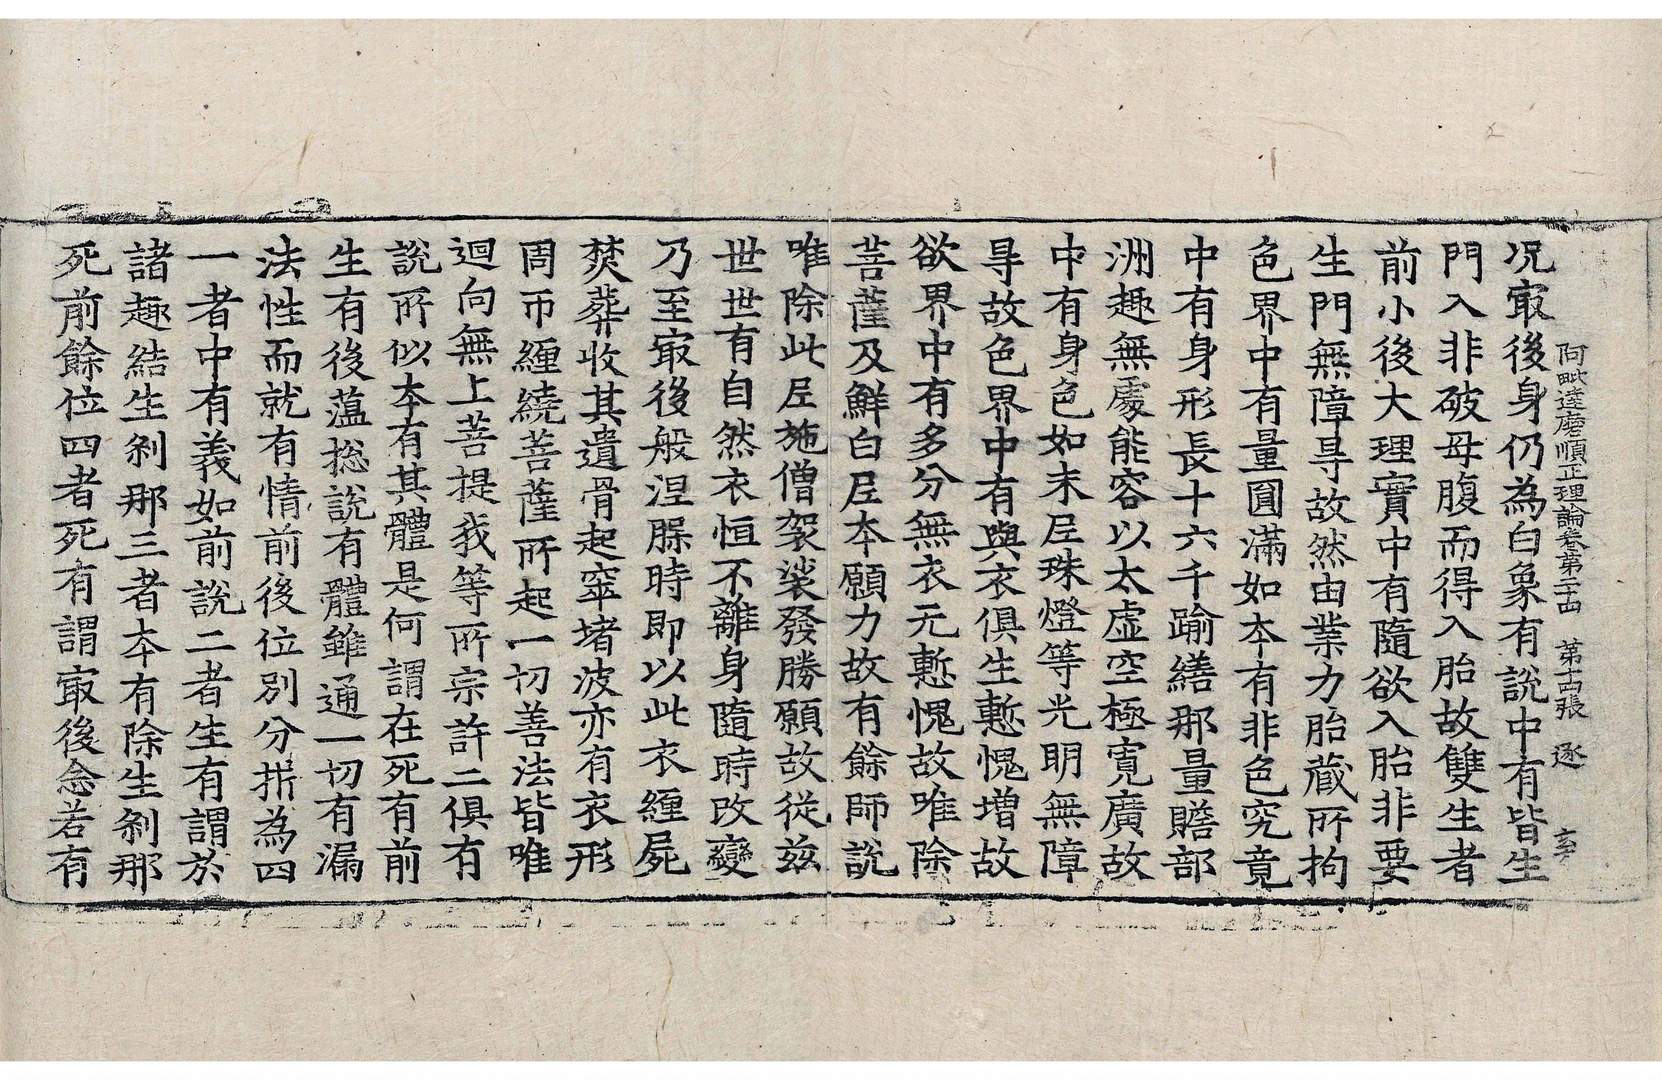 阿毗達磨順正理論卷第二十四　第十四張　逐
况㝡後身仍為白象有說中有皆生
門入非破母腹而得入胎故雙生者
前小後大理實中有隨欲入胎非要
生門無障㝵故然由業力胎藏所拘
色界中有量圓滿如本有非色究竟
中有身形長十六千踰繕那量贍部
洲趣無處能容以太虛空極寬廣故
中有身色如末尼珠燈等光明無障
㝵故色界中有與衣俱生慙愧增故
欲界中有多分無衣无慙愧故唯除
菩薩及鮮白尼本願力故有餘師說
唯除此尼施僧袈裟發勝願故從兹
世世有自然衣恒不離身隨時改變
乃至㝡後般涅槃時即以此衣纏屍
焚葬收其遺骨起窣堵波亦有衣形
周帀纏繞菩薩所起一切善法皆唯
迴向無上菩提我等所宗許二俱有
說所似本有其體是何謂在死有前
生有後蘊捴說有體雖通一切有漏
法性而就有情前後位別分㭊為四
一者中有義如前說二者生有謂於
諸趣結生剎那三者本有除生剎那
死前餘位四者死有謂㝡後念若有